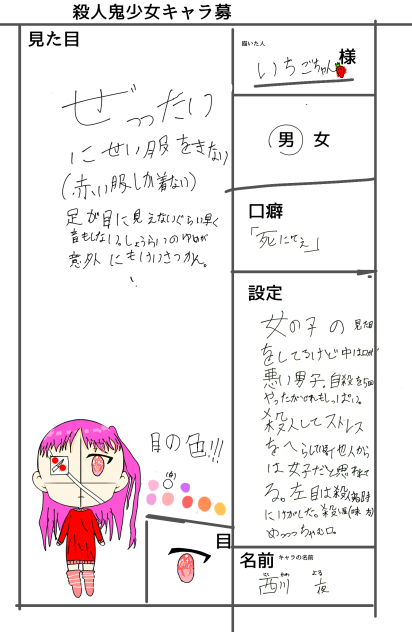 殺人鬼少女キャラ募
見た目
ぜったい
にせい服をきない
(赤い服しか着ない)
足が目に見えないぐらい早く
音もしない。しょうらいのゆめが
意外にもけいさつかん。
目の色!!!
(白)
目
描いた人
いちごちゃん
様
男 女
口癖
「死にてぇ」
設定
女の子の見た目
をしてるけど中は口が
悪い男子。自殺を5回
やったがどれもしっぱい。
殺人してストレス
をへらしてる。他人から
は女子だと思われて
る。左目は殺
にけがした。殺し屋(味方)
めっっっちゃむ口。
名前
キャラの名前
西川
よる
夜